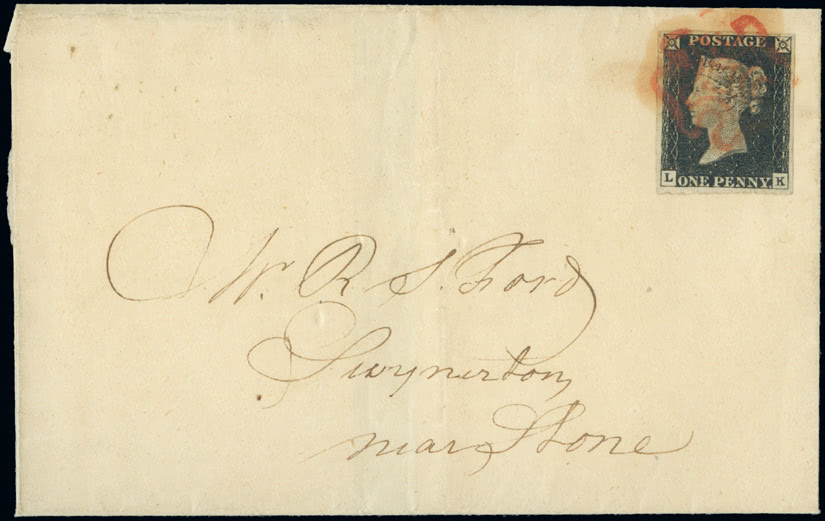 POSTAGE
L ONE PENNY K
Mr. R. S. Ford
Swynerton
near Stone